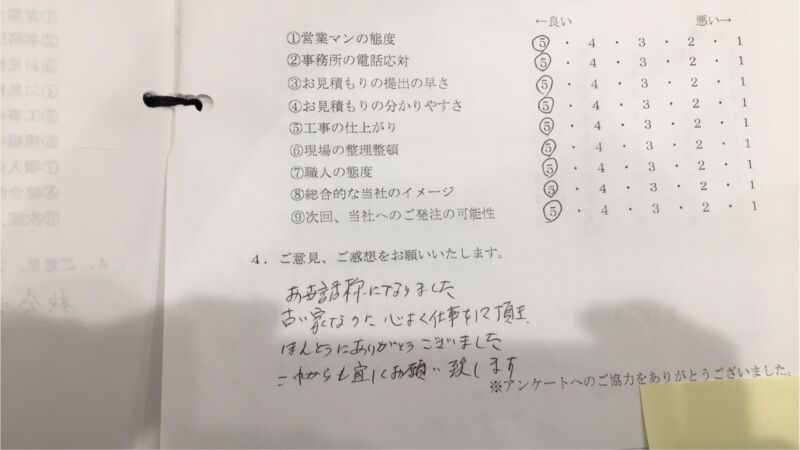 ←良い 悪い→
①営業マンの態度 5・4・3・2・1
②事務所の電話応対 5・4・3・2・1
③お見積もりの提出の早さ 5・4・3・2・1
④お見積もりの分かりやすさ 5・4・3・2・1
⑤工事の仕上がり 5・4・3・2・1
⑥現場の整理整頓 5・4・3・2・1
⑦職人の態度 5・4・3・2・1
⑧総合的な当社のイメージ 5・4・3・2・1
⑨次回、当社へのご発注の可能性 5・4・3・2・1
4．ご意見、ご感想をお願いいたします。
お世話様になりました
古い家なのに 心よく仕事をして頂き
ほんとうにありがとうございました
これからも宜しくお願い致します
※アンケートへのご協力をありがとうございました。